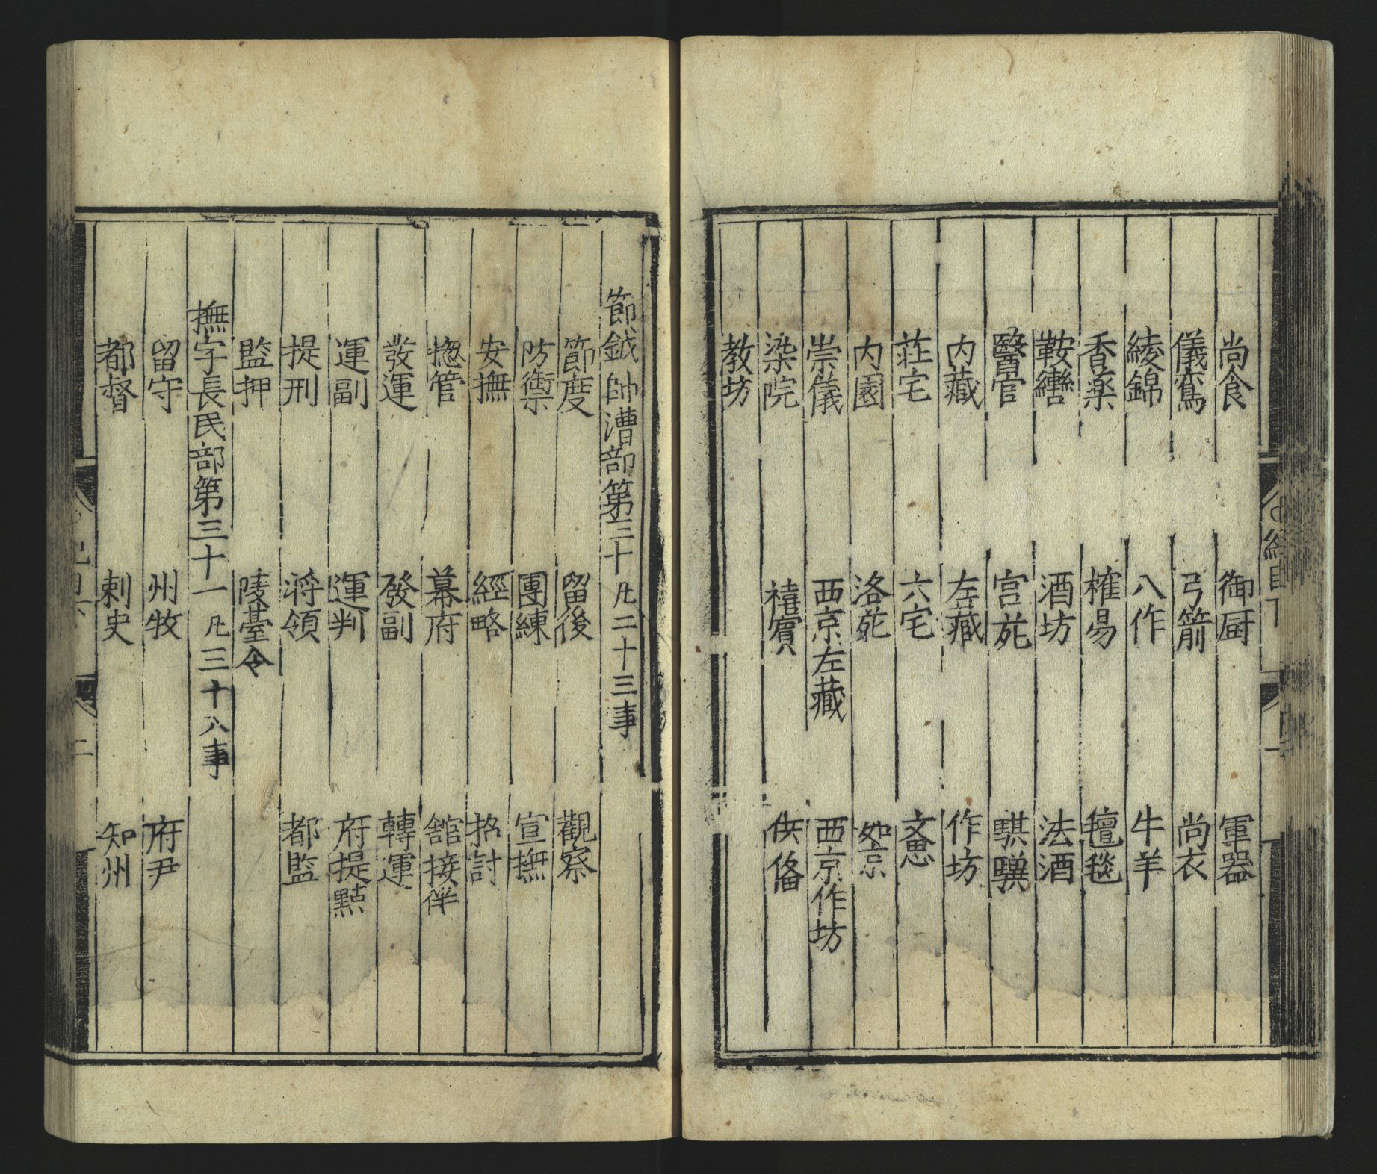 尚食 御厨 軍器
儀鸞 弓箭 尚衣
綾錦 八作 牛羊
香藥 榷易 氊毯
鞍轡 酒坊 法酒
醫官 宫苑 騏驥
内藏 左藏 作坊
莊宅 六宅 文思
内園 洛苑 如京
崇儀 西京左藏 西京作坊
染院 禧賓 供俻
教坊
節鉞帥漕部第三十 凡二十三事
節度 留後 觀察
防禦 團練 宣撫
安撫 經略 招討
揔管 幕府 舘接伴
發運 發副 轉運
運副 運判 府提㸃
提刑 將領 都監
監押 陵臺令
撫字長民部第三十一 凡三十八事
留守 州牧 府尹
都督 刺史 知州